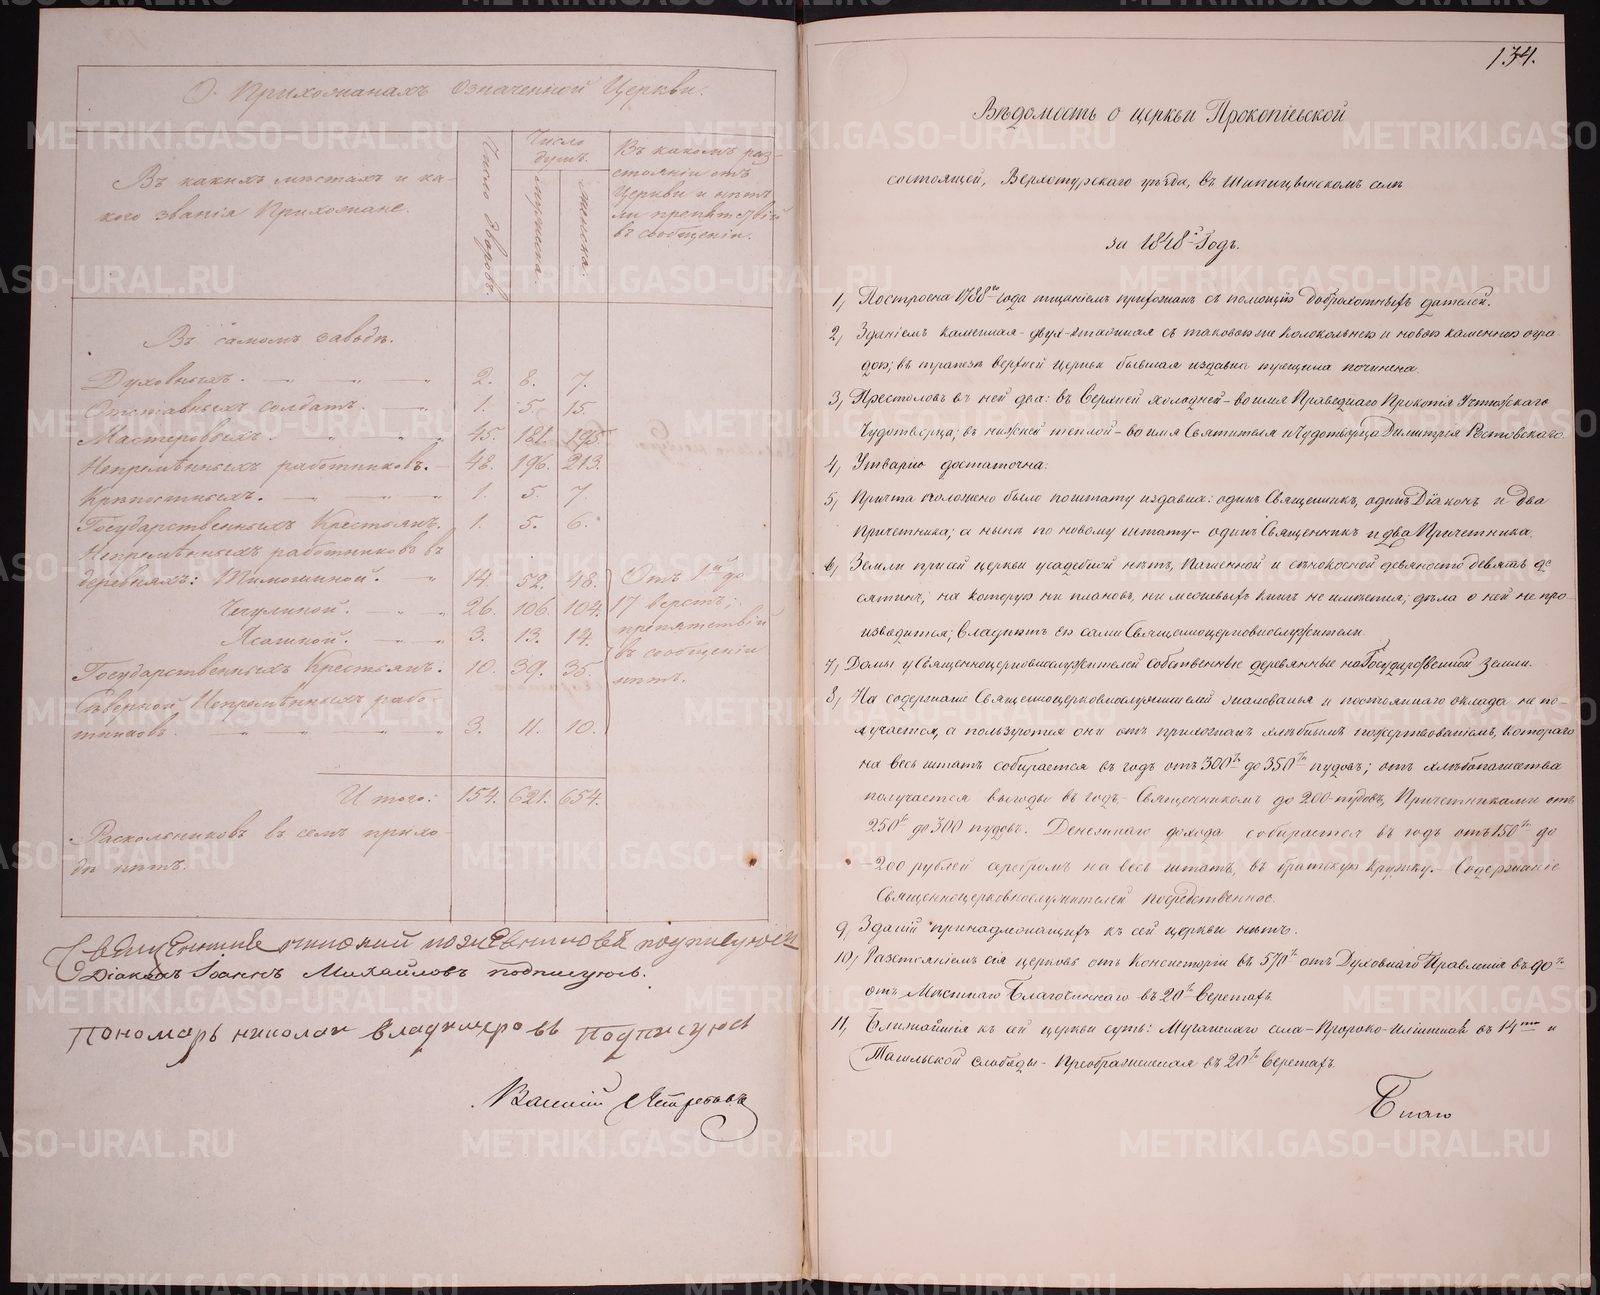 О Прихожанахъ Означенной Церкви.
Въ какихъ мѣстахъ и ка-
кого званія Прихожане.
Число дворовъ.
Число
душъ.
мужска.
женска.
Въ какомъ раз-
стояніи отъ
Церкви и нѣтъ
ли препятствій
въ сообщеніи.
Въ самомъ заводѣ.
Духовныхъ. — — — „ 2. 8. 7.
Отставныхъ солдатъ. — „ 1. 5. 15.
Мастеровыхъ. „ „ „ 45. 181. 195.
Непремѣнныхъ работниковъ. — 48. 196. 213.
Крѣпостныхъ. — „ „ „ 1. 5. 7.
Государственныхъ Крестьянъ. 1. 5. 6.
Непремѣнныхъ работниковъ въ
деревняхъ: Тимошиной. — „ 14. 52. 48.
Чечулиной. — „ 26. 106. 104.
Ясашной. — „ 3. 13. 14.
Государственныхъ Крестьянъ. 10. 39. 35.
Сѣверной Непремѣнныхъ рабо-
тниковъ. „ „ „ „ 3. 11. 10.
Отъ 1й до
17 верстъ;
препятствій
въ сообщеніи
нѣтъ.
И того: 154. 621. 654.
Раскольниковъ въ семъ прихо-
дѣ нѣтъ.
Священникъ подписуюсь
Діаконъ Іоаннъ Михайловъ подписуюсь.
Пономарь николай владимеровъ Подписуюсь
Василий
134.
Вѣдомость о церкви Прокопіевской
состоящей, Верхотурскаго уѣзда, въ Шипицынскомъ селѣ
за 1848й Годъ.
1, Построена 1788го года тщаніемъ прихожанъ съ помощію доброхотныхъ дателей.
2, Зданіемъ каменная - двух-этажная съ таковою же колокольнею и новою каменною огра-
дою; въ трапезѣ верхней церкви бывшая издавна трещина починена.
3, Престоловъ въ ней два: въ Верхней холодней - во имя Праведнаго Прокопія Устюжскаго
Чудотворца; въ нижней теплой - во имя Святителя и Чудотворца Димитрія Ростовскаго.
4, Утварію достаточна.
5, Причта положено было по штату издавна: одинъ Священникъ, одинъ Діаконъ и два
Причетника; а нынѣ по новому штату - одинъ Священникъ и два Причетника.
6, Земли при сей церкви усадебной нѣтъ, пашенной и сѣнокосной девяносто девять де
сятинъ; на которую ни плановъ, ни межевыхъ книгъ не имѣется; дѣла о ней не про-
изводится; Владѣютъ ею сами Священноцерковнослужители.
7, Домы у Священноцерковнослужителей собственные деревянные на Государственной земли.
8, На содержаніе Священноцерковнослужителей жалованья и постояннаго оклада не по-
лучается, а пользуются они отъ прихожанъ хлѣбнымъ пожертвованіемъ, котораго
на весь штатъ собирается въ годъ отъ 300тъ до 350ти пудовъ; отъ хлѣбопашества
получается выгоды въ годъ - Священникомъ до 200 пудовъ, Причетниками отъ
250ти до 300 пудовъ. Денежнаго дохода собирается въ годъ отъ 150ти до
- 200 рублей серебромъ на весь штатъ, въ братскую кружку. - Содержаніе
Священноцерковнослужителей посредственное.
9, Зданій принадлежащихъ къ сей церкви нѣтъ.
10, Разстояніемъ сія церковь отъ Консисторіи въ 570ти отъ Духовнаго Правленія въ 90та
отъ Мѣстнаго Благочиннаго въ 20ти верстахъ.
11, Ближайшія къ сей церкви суть: Мугайскаго села - Пророко-Ильинская въ 14ти и
Тагильской слободы - Преображенская въ 20ти верстахъ.
Благо
METRIKI.GASO-URAL.RU